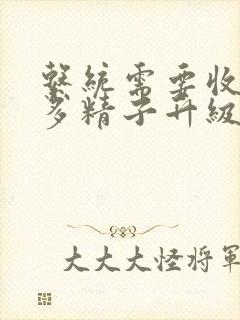 繫統需要收
多精子升級
大大大怪将軍